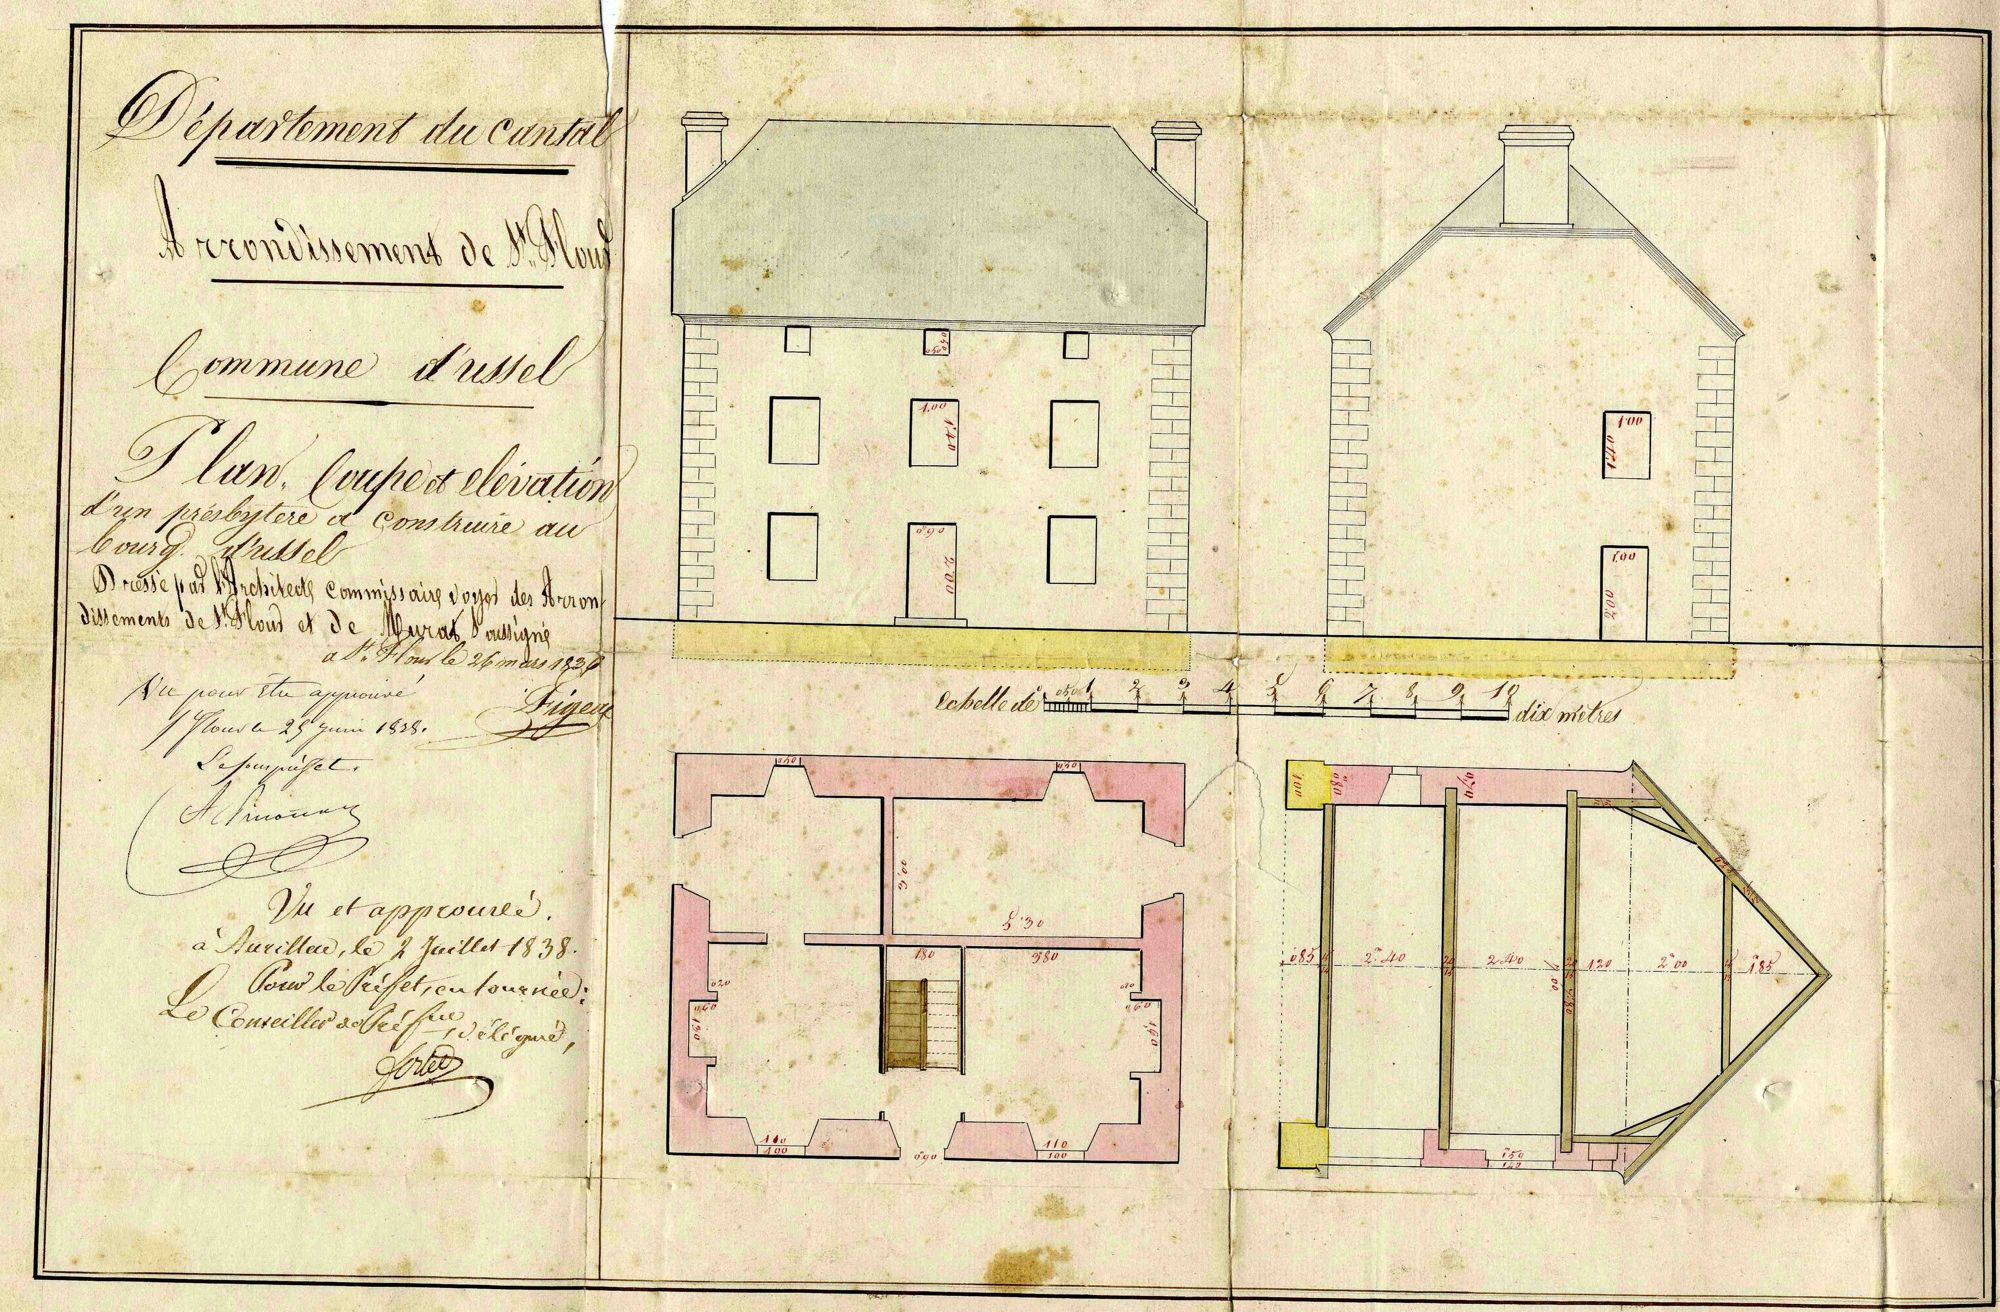 Département du cantal
Arrondissement de St. Flour
Commune d'ussel
Plan, Coupe et elévation
d'un présbytere a construire au
bourg d'ussel
Dressé par l'Architecte commissaire voyer des Arron
dissements de St. Flour et de Murat Soussigné
a St. Flour le 26 mars 1836
Vu pour être approuvé
St Flour le 25 juin 1838.
Le souspréfet.
Vu et approuvé.
à Aurillac, le 2 Juillet 1838.
Pour le Préfet, en tournée:
Le Conseiller de Préfure, délégué,
0,50
0,50
1,00
1,40
0,90
2,00
1,00
1,40
1,00
2,00
Echelle de 0,50 1 2 3 4 5 6 7 8 9 10 dix mètres
0,50
0,50
3,00
5,30
180
380
020
0,60
1,50
0,60
1,50
110
100
0,90
110
100
1,00
0,80
0,70
0,85
2,40
2,40
120
2,00
1,85
1,50